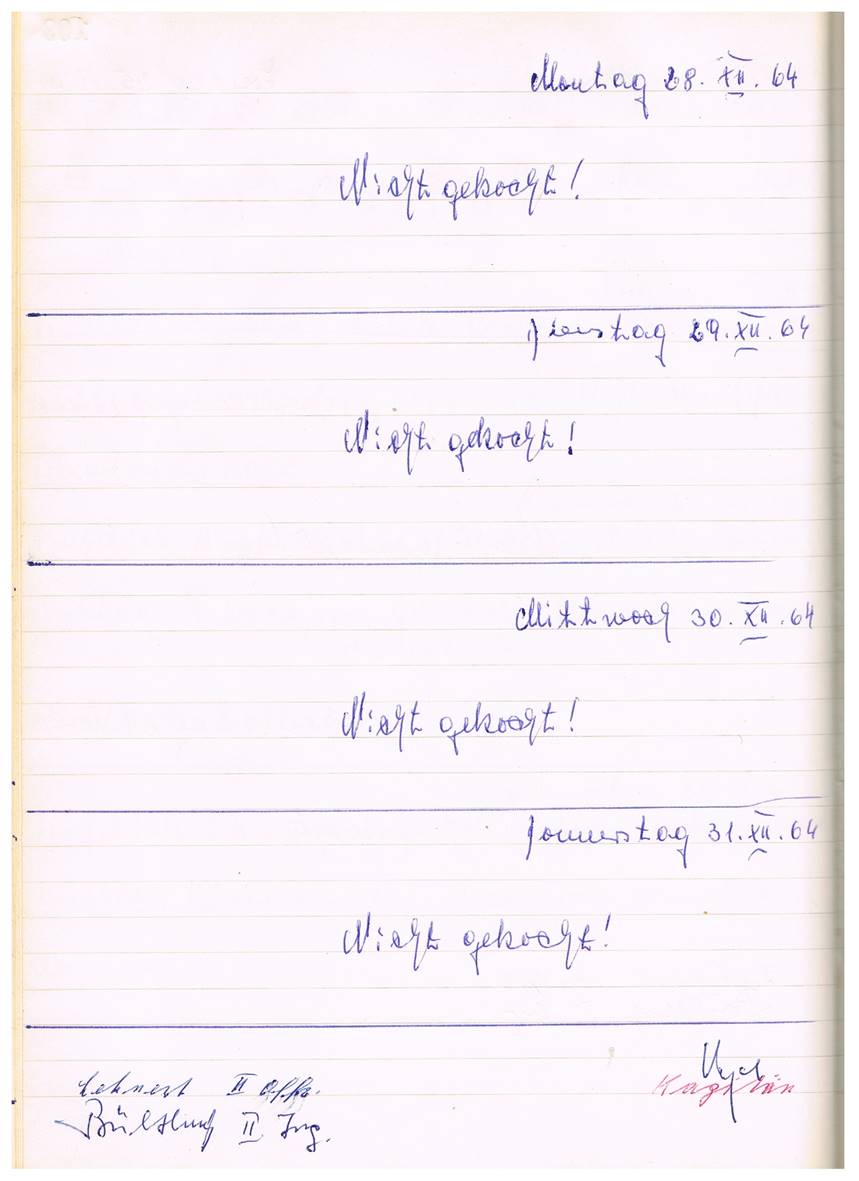 Montag 28. XII. 64
Nicht gekocht!
Dienstag 29. XII. 64
Nicht gekocht!
Mittwoch 30. XII. 64
Nicht gekocht!
Donnerstag 31. XII. 64
Nicht gekocht!
Lehnert II Offz.
Kapitän
II Ing.